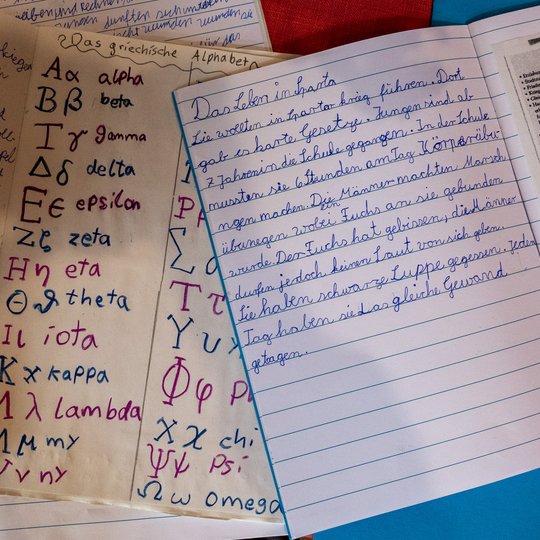 Das griechische Alphabet
Αα alpha
Ββ beta
Γγ gamma
Δδ delta
Εϵ epsilon
Ζζ zeta
Ηη eta
Θϑ theta
Ιι iota
Κϰ kappa
Λλ lambda
Μμ my
Νν ny
Ρ
Σσ
Ττ
Υυ
Φφ
Χχ chi
Ψψ psi
Ωω omega
Das Leben in Sparta
Sie wollten in Spartar krieg führen. Dort
gab es harte Gesetze. Jungen sind ab
7 Jahren in die Schule gegangen. In der Schule
mussten sie 6 Stunden am Tag Körperübu-
ngen machen. Die Männer machten Marsch
übunegen wobei ein Fuchs an sie gebunden
wurde. Der Fuchs hat gebissen, die Männer
durfen jedoch keinen Laut von sich geben.
Sie haben schwarze Suppe gegessen. Jeden
Tag haben sie das gleiche Gewand
getragen.